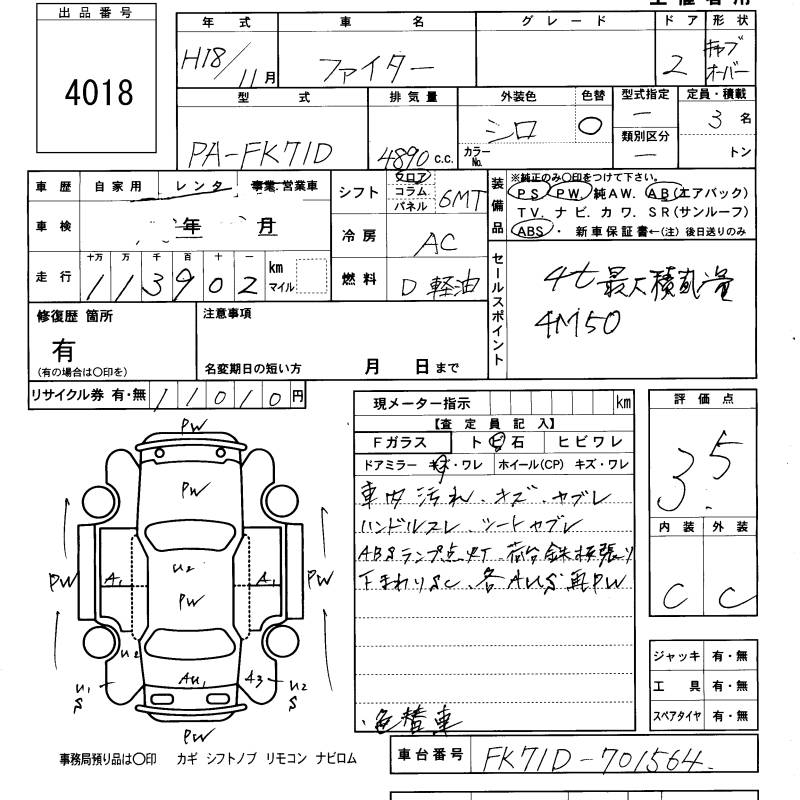 出品番号
4018
年式 車名 グレード ドア 形状
H18/11月 ファイター 2 キャブオーバー
型式 排気量 外装色 色替 型式指定 定員・積載
PA-FK71D 4890c.c. シロ カラーNo. ○ — 3名
類別区分 — トン
車歴 自家用 レンタ 事業.営業車
車検 年 月
走行 十万 万 千 百 十 一 km マイル
113902
シフト フロア コラム パネル 6MT
冷房 AC
燃料 D 軽油
装備品
※純正のみ○印をつけて下さい。
PS PW. 純AW. AB(エアバック)
TV. ナビ. カワ. SR(サンルーフ)
ABS・ 新車保証書←(注) 後日送りのみ
セールスポイント
4t 最大積載量
4M50
修復歴 箇所
有
(有の場合は○印を)
注意事項
名変期日の短い方 月 日まで
リサイクル券 有・無 11010円
現メーター指示 km
【査定員記入】
Fガラス トビ石 ヒビワレ
ドアミラー キズ・ワレ ホイール(CP) キズ・ワレ
車内汚れ、キズ、ヤブレ
ハンドルスレ、シートヤブレ
ABSランプ点灯、荷台鉄板張り
下まわりSC、各AUS再PW
・色替車
評価点
3.5
内装 外装
C C
ジャッキ 有・無
工具 有・無
スペアタイヤ 有・無
車台番号 FK71D-701564.
PW
PW
PW A1 U2 A1 PW
PW
U2
U1 S AU1 A3 U2 S
PW
事務局預り品は○印 カギ シフトノブ リモコン ナビロム